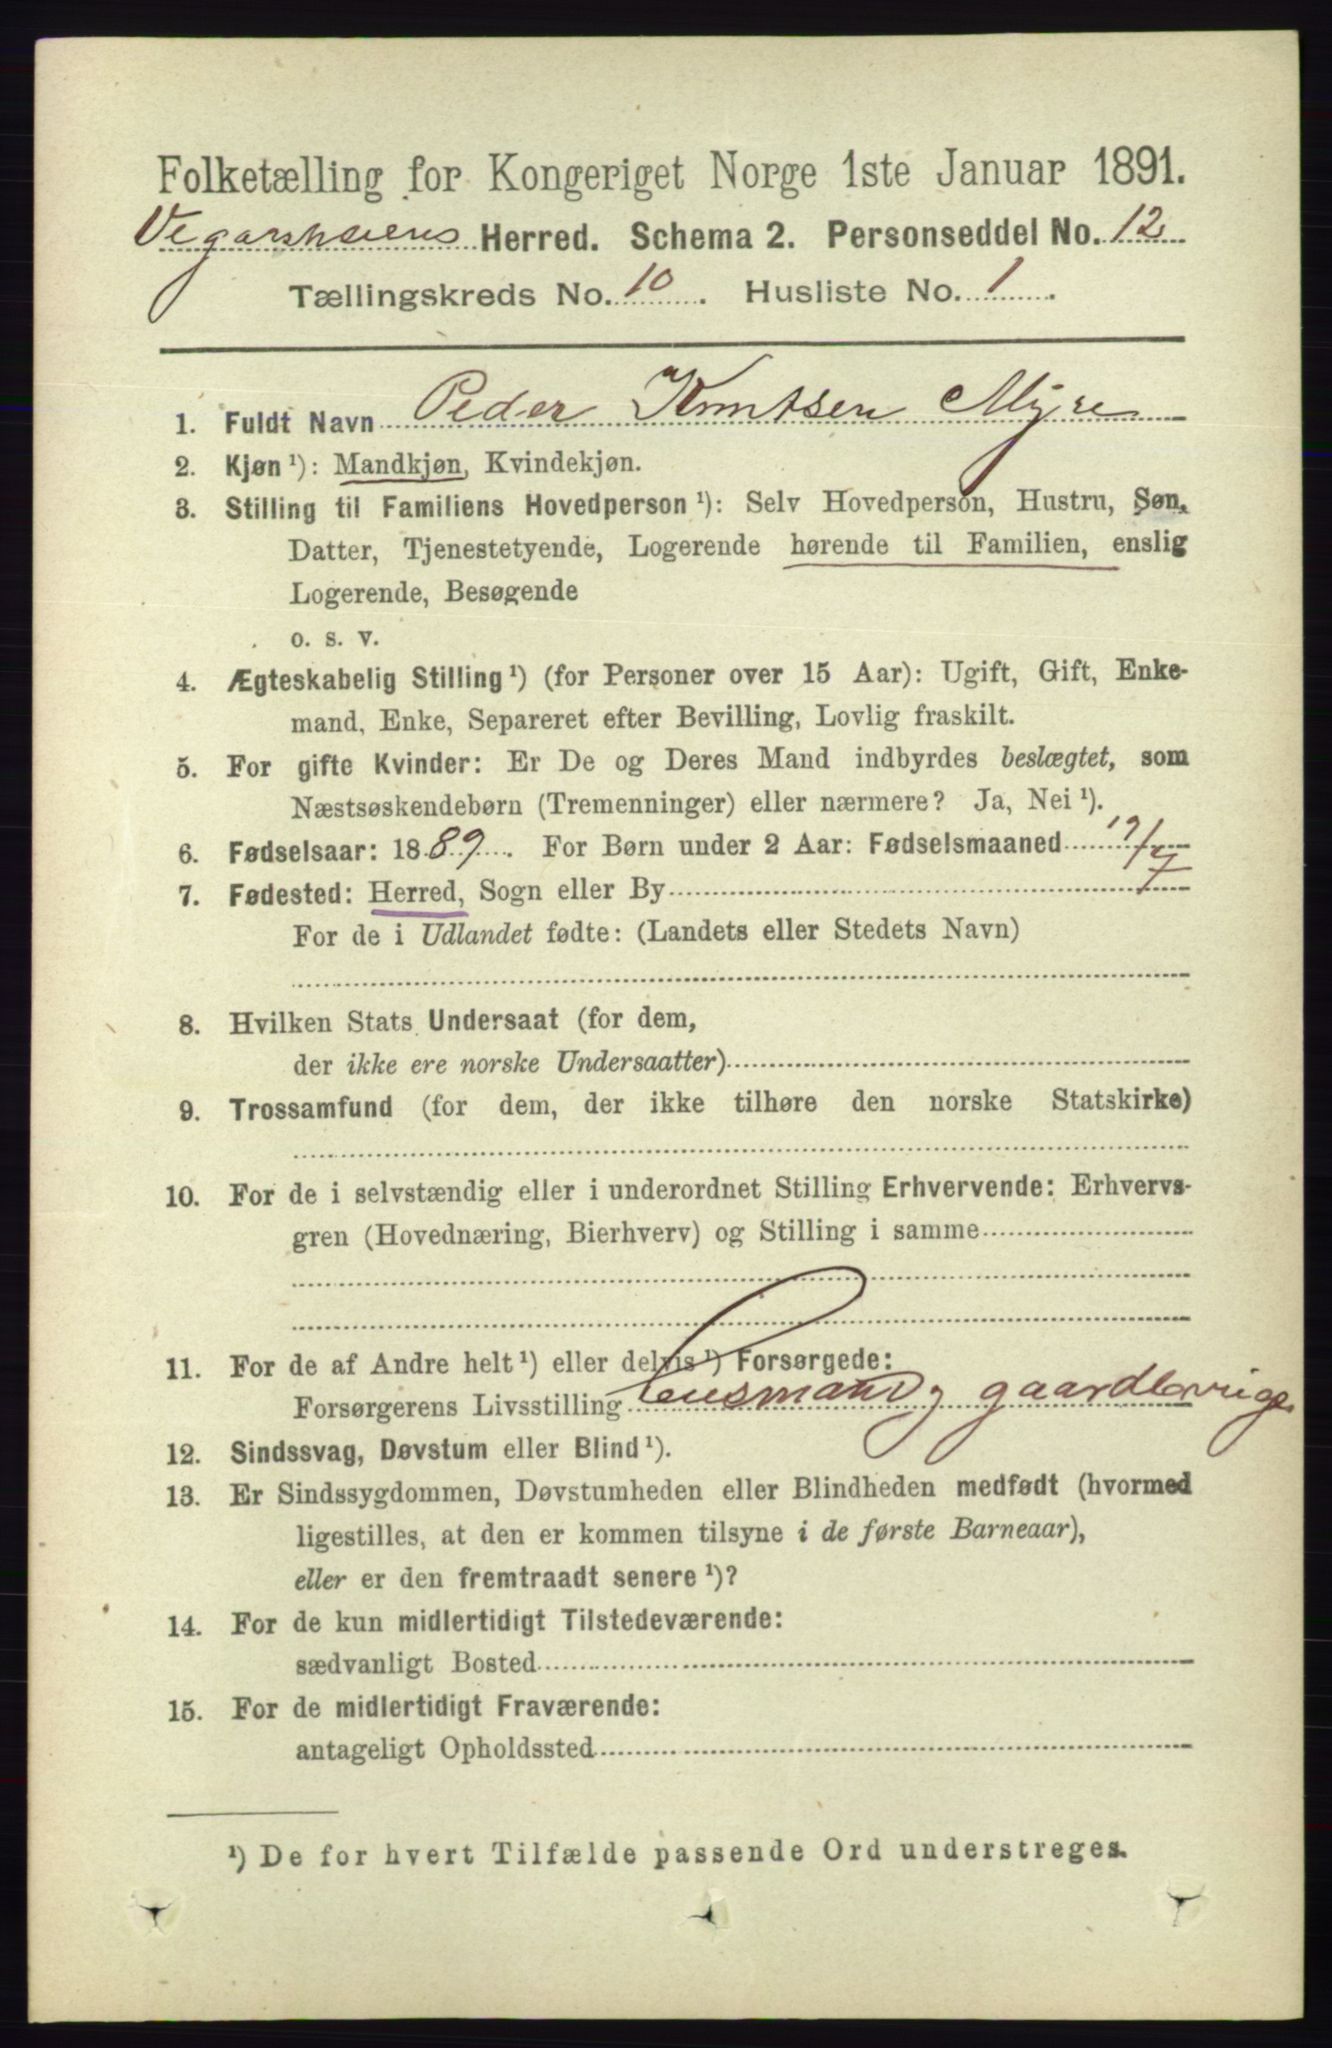 Folketælling for Kongeriget Norge 1ste Januar 1891.
Vegarsheiens Herred. Schema 2. Personseddel No. 12
Tællingskreds No. 10. Husliste No. 1.
1. Fuldt Navn Peder Knutsen Myre
2. Kjøn ¹): Mandkjøn, Kvindekjøn.
3. Stilling til Familiens Hovedperson ¹): Selv Hovedperson, Hustru, Søn,
Datter, Tjenestetyende, Logerende hørende til Familien, enslig
Logerende, Besøgende
o. s. v.
4. Ægteskabelig Stilling ¹) (for Personer over 15 Aar): Ugift, Gift, Enke-
mand, Enke, Separeret efter Bevilling, Lovlig fraskilt.
5. For gifte Kvinder: Er De og Deres Mand indbyrdes beslægtet, som
Næstsøskendebørn (Tremenninger) eller nærmere? Ja, Nei ¹).
6. Fødselsaar: 1889. For Børn under 2 Aar: Fødselsmaaned 19/7
7. Fødested: Herred, Sogn eller By
For de i Udlandet fødte: (Landets eller Stedets Navn)
8. Hvilken Stats Undersaat (for dem,
der ikke ere norske Undersaatter)
9. Trossamfund (for dem, der ikke tilhøre den norske Statskirke)
10. For de i selvstændig eller i underordnet Stilling Erhvervende: Erhvervs-
gren (Hovednæring, Bierhverv) og Stilling i samme
11. For de af Andre helt ¹) eller delvis ¹) Forsørgede:
Forsørgerens Livsstilling Lensmand
12. Sindssvag, Døvstum eller Blind ¹).
13. Er Sindssygdommen, Døvstumheden eller Blindheden medfødt (hvormed
ligestilles, at den er kommen tilsyne i de første Barneaar),
eller er den fremtraadt senere ¹)?
14. For de kun midlertidigt Tilstedeværende:
sædvanligt Bosted
15. For de midlertidigt Fraværende:
antageligt Opholdssted
¹) De for hvert Tilfælde passende Ord understreges.